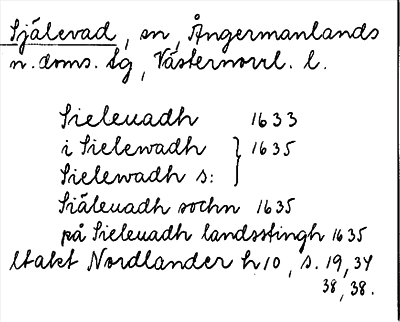 Själevad, sn, Ångermanlands
n. doms. sg, Västernorrl. l.
Sieleuadh 1633
i Sielewadh } 1635
Sielewadh s:
Siäleuadh sochn 1635
på Sieleuadh landsstingh 1635
Utakt Nordlander h 10, s. 19, 34
38, 38.